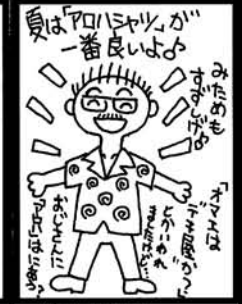 夏は「アロハシャツ」が
一番良いよ♪
みためも
すずしげ♪
「オマエは
テキ屋か?」
とかいわれ
ますたけど…
おじさんに
アロハはにあう?